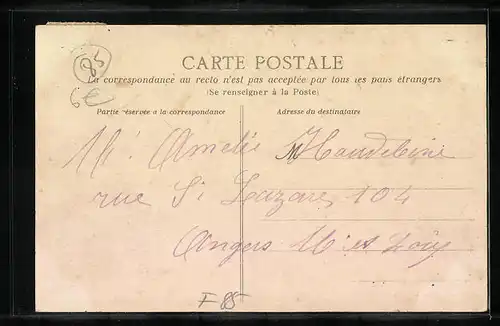 85
6€
CARTE POSTALE
La correspondance au recto n'est pas acceptée par tous les pays étrangers
(Se renseigner à la Poste)
Partie réservée à la correspondance
Adresse du destinataire
Amelie
rue St Lazare 104
Angers M et Loire
F 85